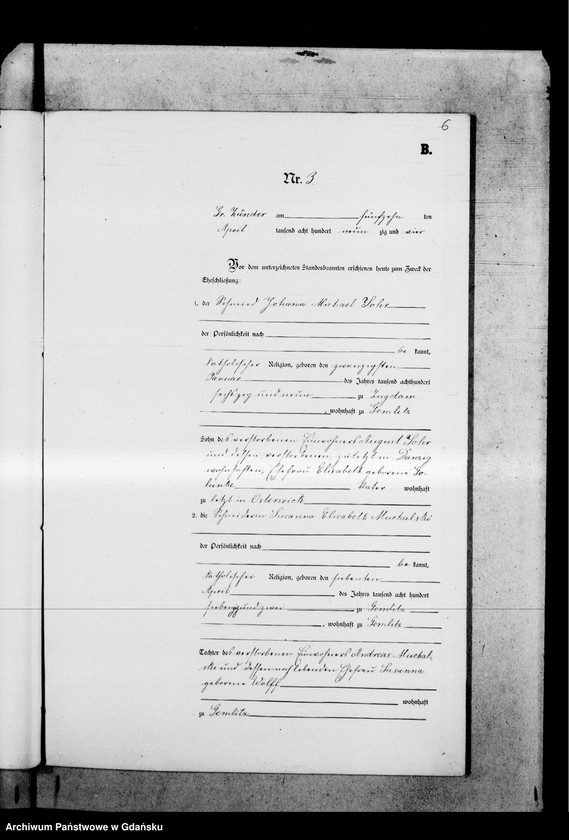 6
B.
Nr. 3
Gr. Zünder am fünfzehn ten
April tausend acht hundert neun zig und vier
Vor dem unterzeichneten Standesbeamten erschienen heute zum Zweck der
Eheschließung:
1. der Schmied Johann Michael Sohr
der Persönlichkeit nach
be kannt,
katholischer Religion, geboren den zwanzigsten
Januar des Jahres tausend achthundert
sechszig und neun zu Zugdam
, wohnhaft zu Gemlitz
Sohn des verstorbenen Einwohners August Sohr
und dessen verstorbenen, zuletzt in Danzig
wohnhaften, Ehefrau Elisabeth geborene
Vater wohnhaft
zu letzt in Osterwick
2. die Schneiderin Susanna Elisabeth Muchalski
der Persönlichkeit nach
be kannt,
katholischer Religion, geboren den siebenten
April des Jahres tausend acht hundert
siebenzig und zwei zu Gemlitz
, wohnhaft zu Gemlitz
Tochter des verstorbenen Einwohners Andreas Muchal-
ski und dessen noch lebenden Ehefrau Susanna
geborene Wolff
wohnhaft
zu Gemlitz
Archiwum Państwowe w Gdańsku